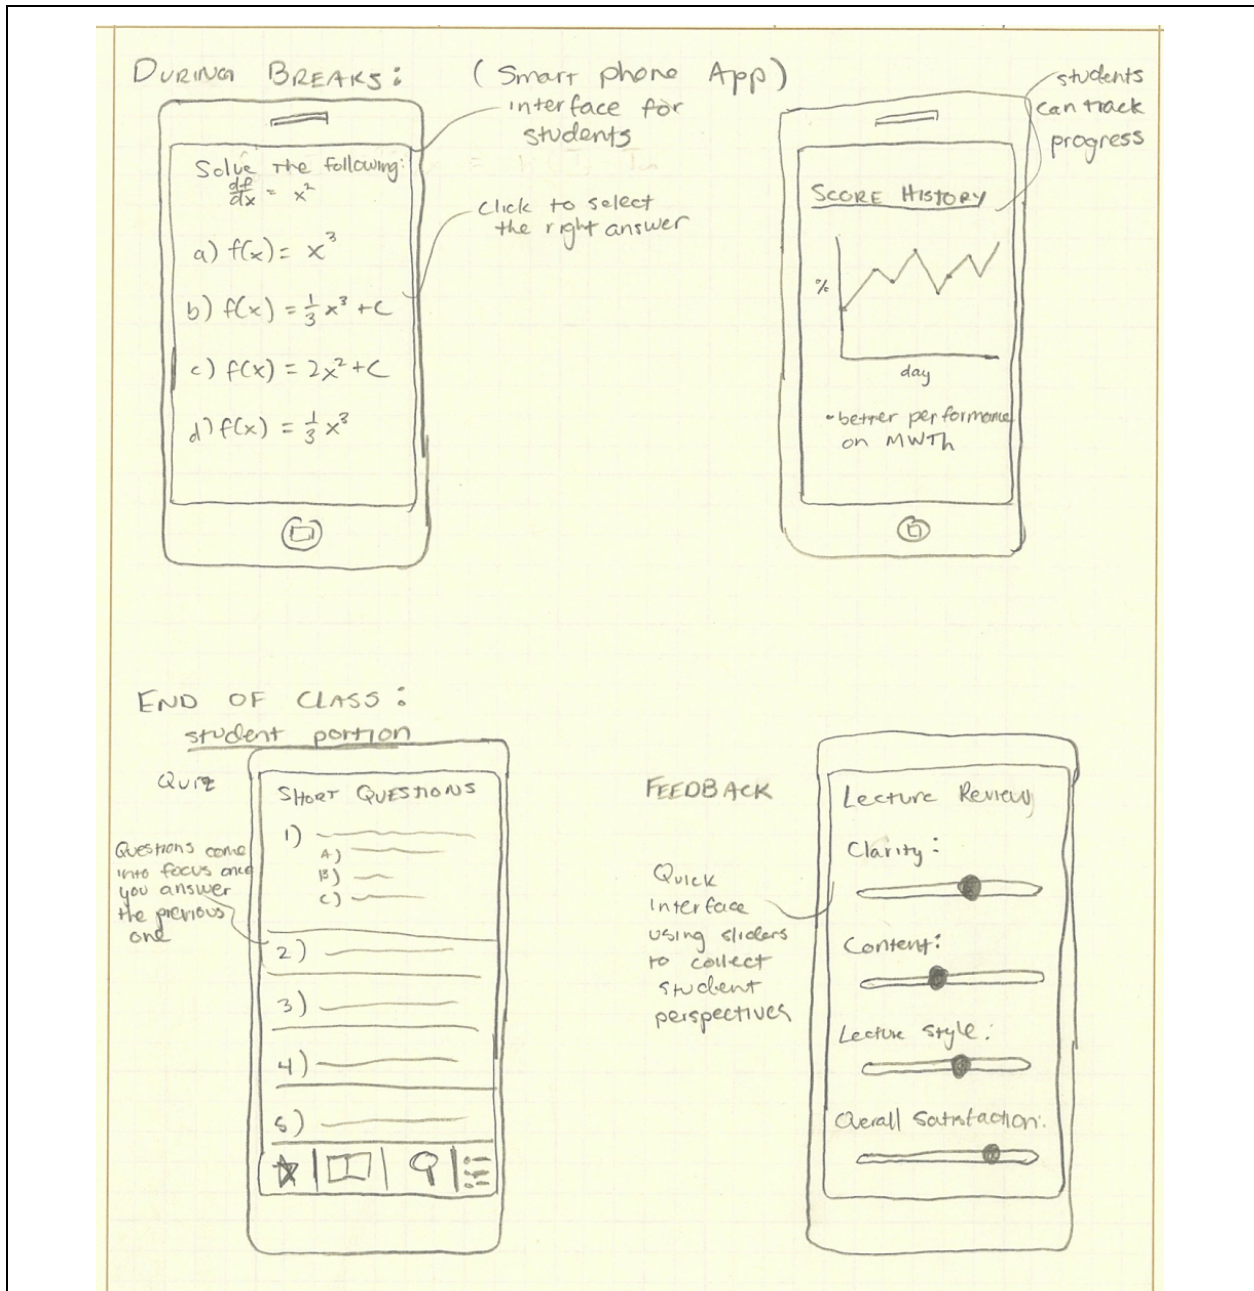 DURING BREAKS: (Smart phone App)
interface for
students
Solve the following:
df/dx = x²
a) f(x) = x³
b) f(x) = 1/3 x³ + C
c) f(x) = 2x² + C
d) f(x) = 1/3 x³
click to select
the right answer
students
can track
progress
SCORE HISTORY
%
day
- better performance
on MWTh
END OF CLASS:
student portion
Quiz
Questions come
into focus once
you answer
the previous
one
SHORT QUESTIONS
1)
A)
B)
C)
2)
3)
4)
5)
FEEDBACK
Quick
interface
using sliders
to collect
student
perspectives
Lecture Review
Clarity:
Content:
Lecture Style:
Overall Satisfaction: